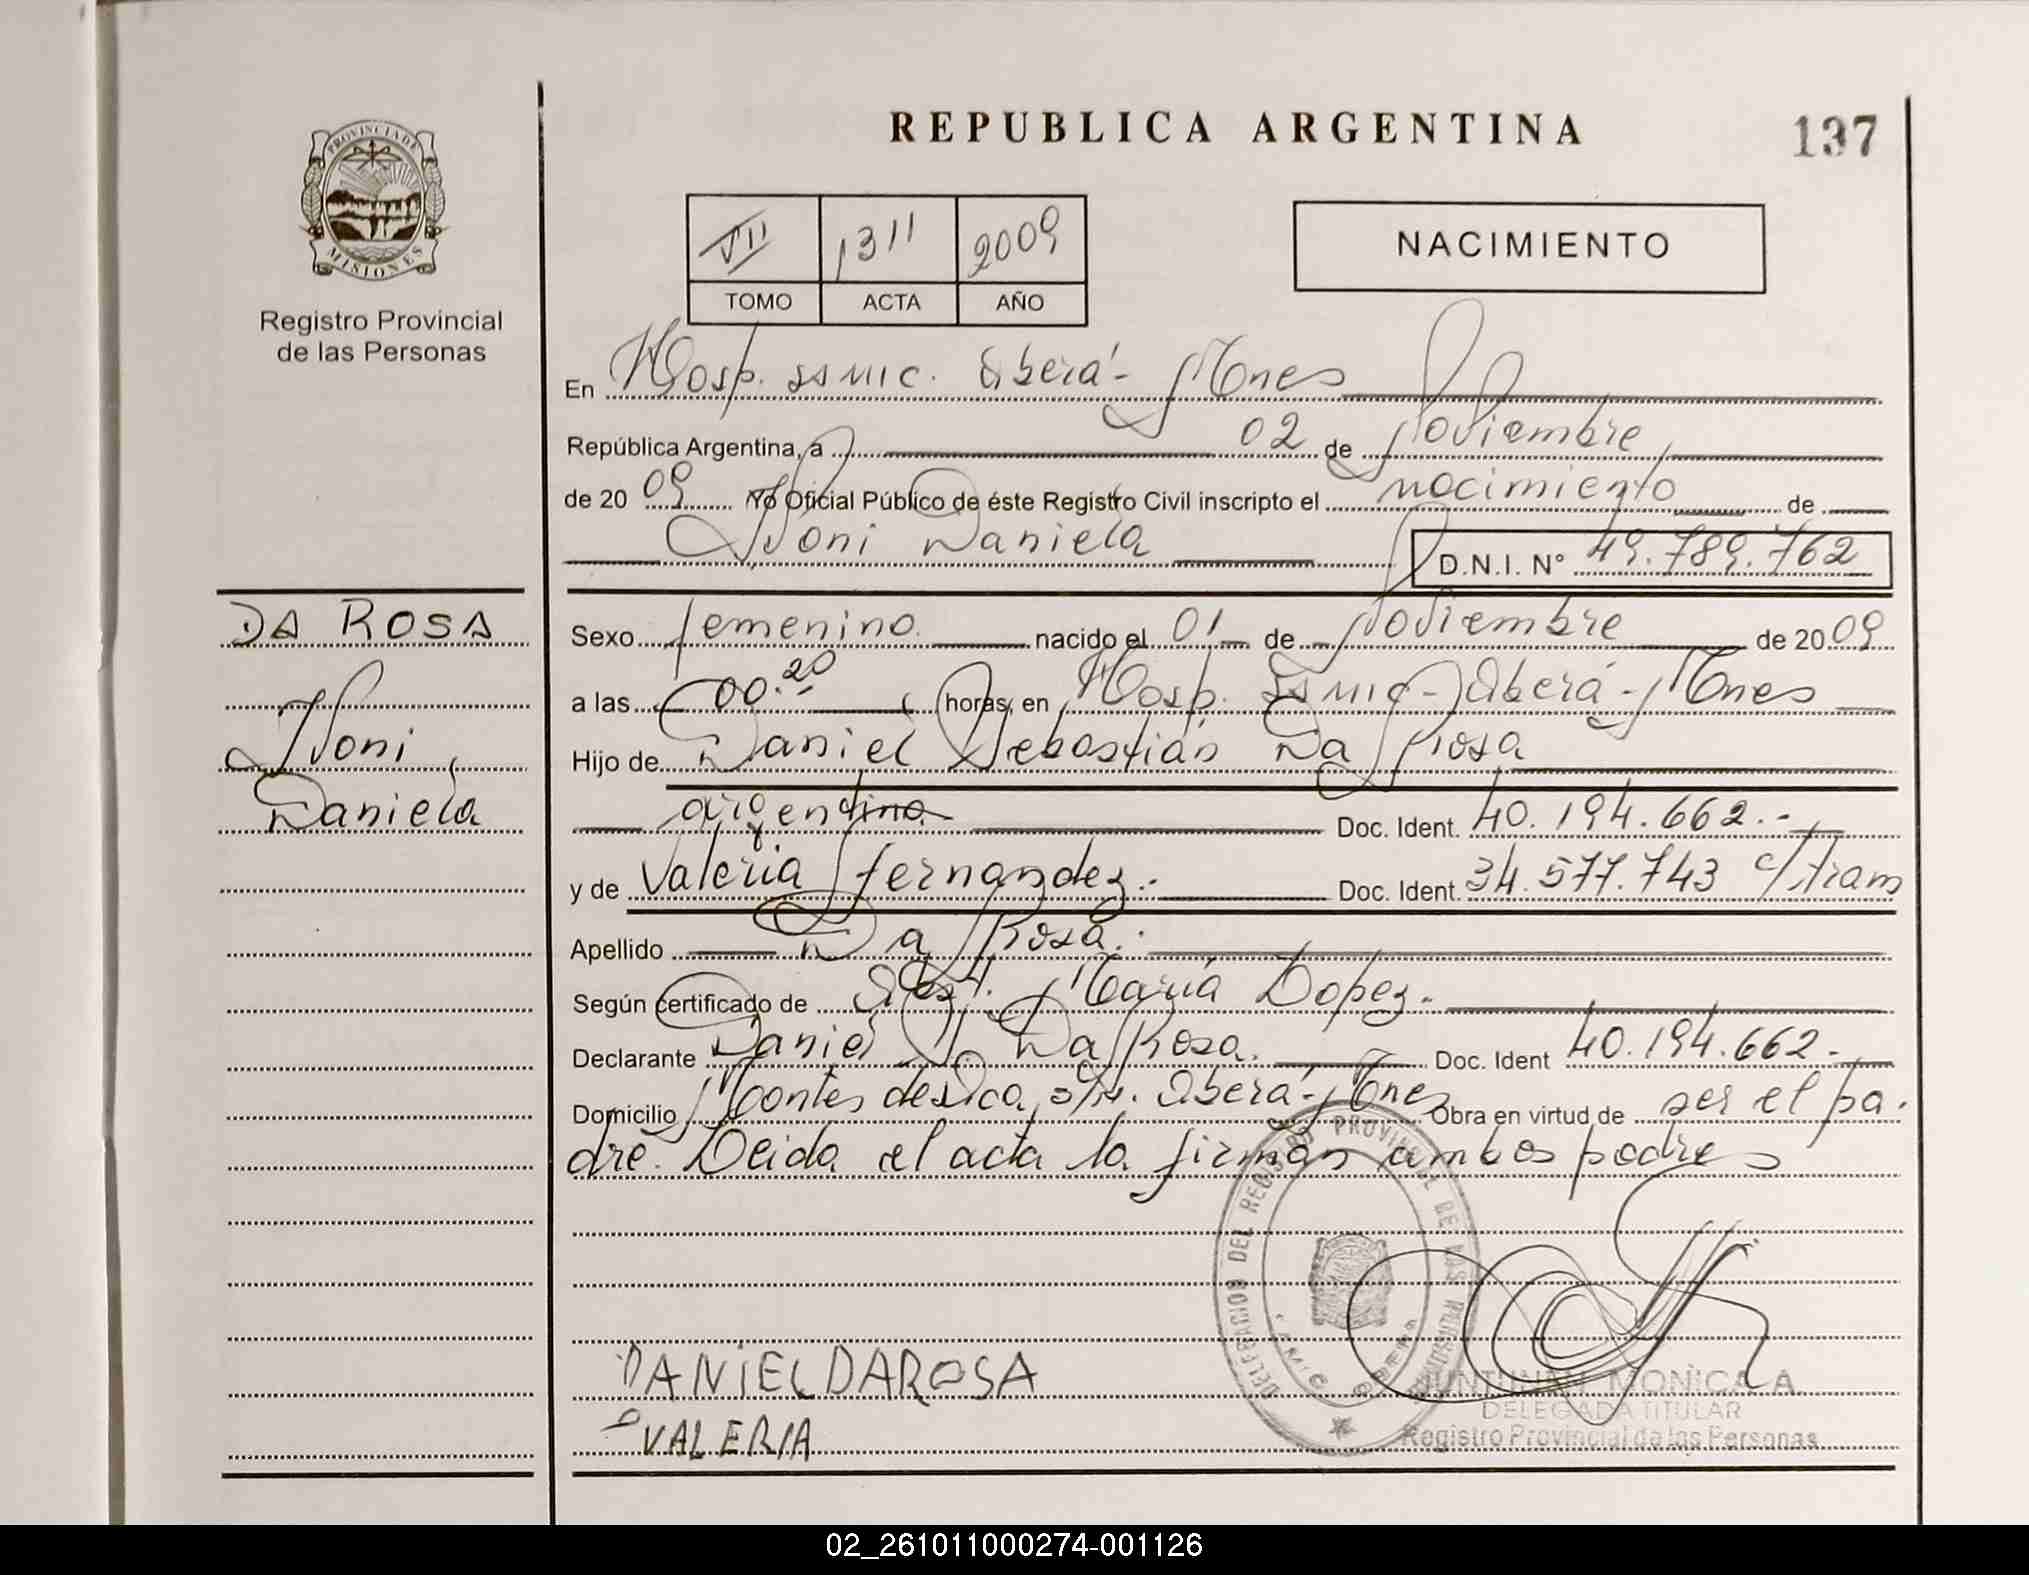 REPUBLICA ARGENTINA
137
PROVINCIA DE
MISIONES
Registro Provincial
de las Personas
VII 1311 2009
TOMO ACTA AÑO
NACIMIENTO
En Hosp. SAMIC. Oberá - Mnes
República Argentina, a 02 de Noviembre
de 20 09 Yo Oficial Público de éste Registro Civil inscripto el nacimiento de
Noni Daniela
D.N.I. Nº 49.789.762
DA ROSA
Noni
Daniela
Sexo femenino nacido el 01 de Noviembre de 20 09
a las 00.20 horas, en Hosp. Samic - Oberá - Mnes
Hijo de Daniel Sebastián Da Rosa
argentino Doc. Ident. 40.194.662.-
y de Valeria Fernandez.- Doc. Ident. 34.577.743 c/tram
Apellido Da Rosa.-
Según certificado de Obst. María Lopez.-
Declarante Daniel S. Da Rosa. Doc. Ident 40.194.662.-
Domicilio Montes de Oca s/n. Oberá - Mnes Obra en virtud de ser el pa.
dre. Leida el acta la firman ambos padres
DELEGACION DEL REGISTRO PROVINCIAL DE LAS PERSONAS
DANIEL DAROSA
VALERIA
MONICA A
DELEGADA TITULAR
Registro Provincial de las Personas
02_261011000274-001126